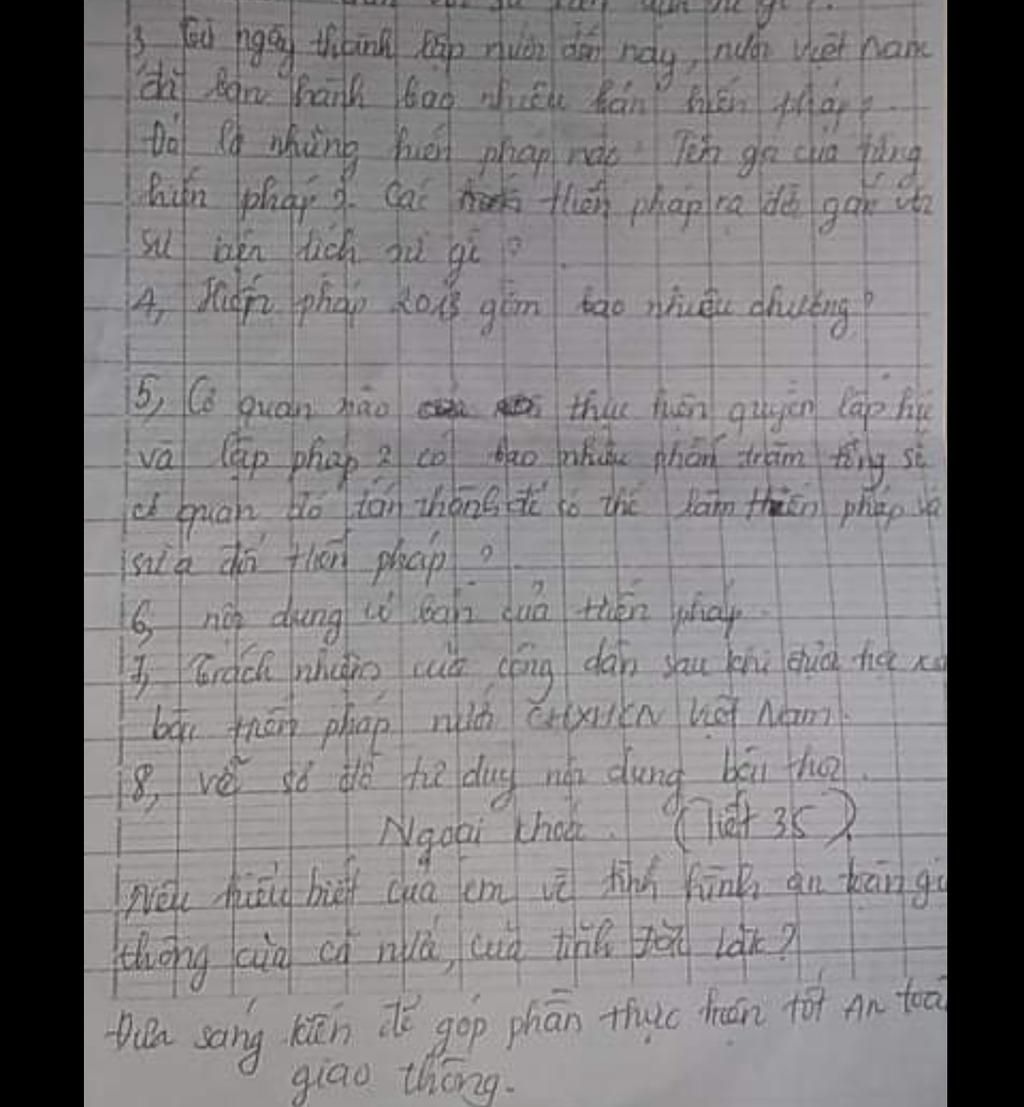 3 Từ ngày thành lập nước đến nay, nước Việt Nam
đã ban hành bao nhiêu bản hiến pháp?
Đó là những hiến pháp nào? Tên gọi của từng
hiến pháp? Các hiến pháp ra đời gắn với
sự kiện lịch sử gì?
4, Hiến pháp 2013 gồm bao nhiêu chương?
5, Cơ quan nào thực hiện quyền lập hiế
và lập pháp? có bao nhiêu phần trăm tổng số
cơ quan đó tán thành để có thể làm hiến pháp và
sửa đổi hiến pháp?
6, nội dung cơ bản của hiến pháp.
7, Trách nhiệm của công dân sau khi học
bài hiến pháp nước CHXHCN Việt Nam.
8, vẽ sơ đồ tư duy nội dung bài học.
Ngoại khoá. (Tiết 35)
Nêu hiểu biết của em về tình hình an toàn gi
thông của cả nước, của tỉnh Đắk Lắk?
Đưa sáng kiến để góp phần thực hiện tốt An toà
giao thông.